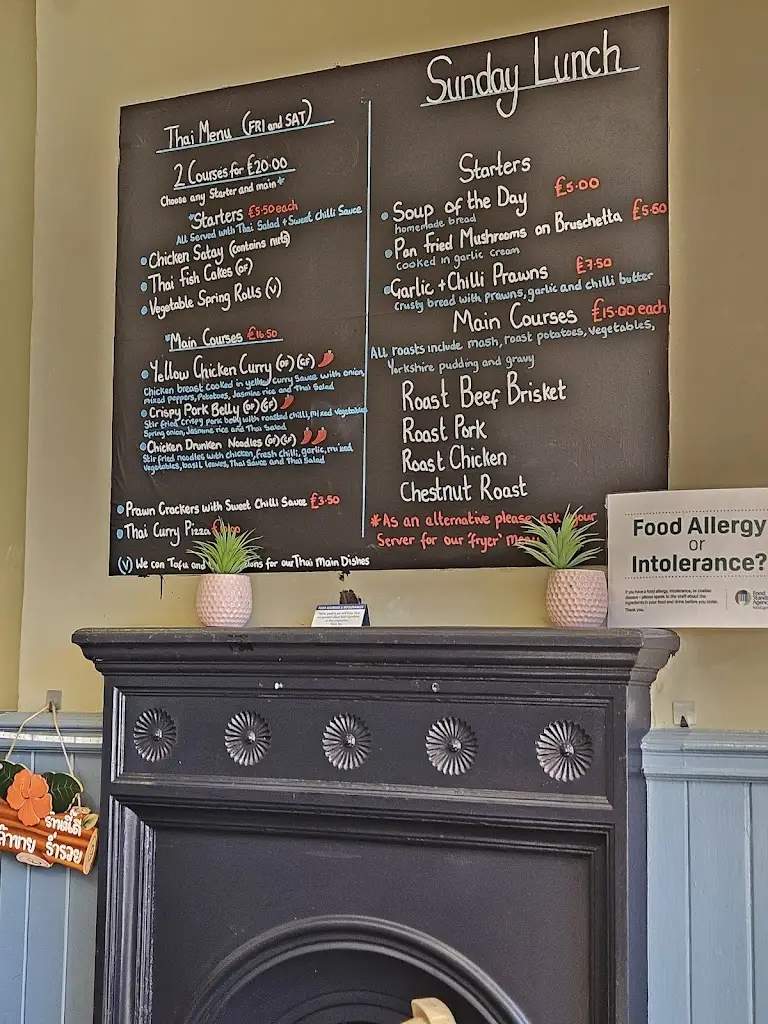 Thai Menu (FRI and SAT)
2 Courses for £20.00
Choose any Starter and main*
*Starters £5.50 each
All Served with Thai Salad + Sweet chilli Sauce
Chicken Satay (contains nuts)
Thai Fish Cakes (DF)
Vegetable Spring Rolls (V)
*Main Courses £16.50
Yellow Chicken Curry (DF) (GF)
Chicken breast cooked in yellow curry Sauce with onion,
mixed peppers, Potatoes, Jasmine rice and Thai Salad
Crispy Pork Belly (DF) (GF)
Stir fried crispy pork belly with roasted chilli, mixed vegetables
Spring onion, Jasmine rice and Thai Salad
Chicken Drunken Noodles (DF) (GF)
Stir fried noodles with chicken, fresh chilli, garlic, mixed
vegetables, basil leaves, Thai Sauce and Thai Salad
Prawn Crackers with Sweet Chilli Sauce £3.50
Thai Curry Pizza
(V) We can Tofu and for our Thai Main Dishes
Sunday Lunch
Starters
Soup of the Day £5.00
homemade bread
Pan Fried Mushrooms on Bruschetta £5.50
cooked in garlic cream
Garlic + Chilli Prawns £7.50
Crusty bread with prawns, garlic and chilli butter
Main Courses £15.00 each
All roasts include mash, roast potatoes, vegetables,
Yorkshire pudding and gravy
Roast Beef Brisket
Roast Pork
Roast Chicken
Chestnut Roast
*As an alternative please ask your
Server for our 'fryer'
Food Allergy
or
Intolerance?
If you have a food allergy, intolerance, or coeliac
disease – please speak to the staff about the
ingredients in your food and drink before you order.
Thank you.
Food
Standards
Agency
ค้าขาย ร่ำรวย